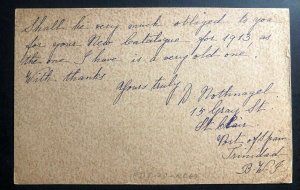 Shall be very much obliged to you
for your New Catalogue for 1913 as
the one I have is a very old one.
With thanks
Yours truly
D Nothnagel
15 Gray St.
St Clair
Port of Spain
Trinidad
B W I